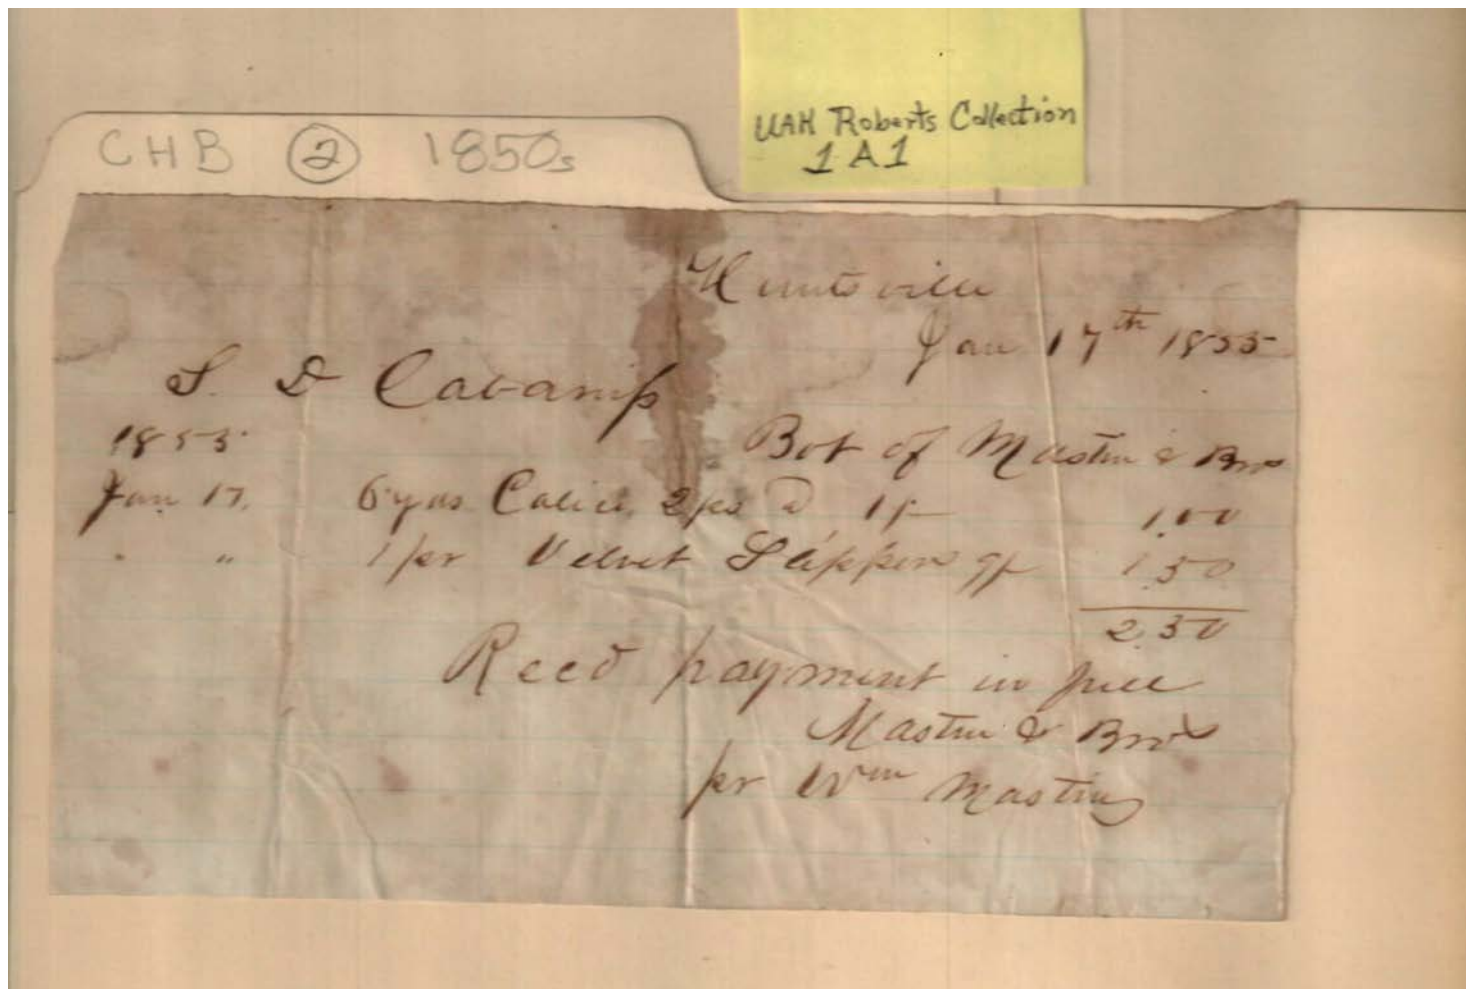 UAH Roberts Collection
1 A 1
CHB 2 1850s
Huntsville
Jan 17th 1855
S. D Cabaniss
1855
Bot of Mastin & Bros
Jan 17. 6 yds Calico 2 ps @ 1/- 1.00
" " 1 pr Velvet Slippers 9/- 1.50
2.50
Recd payment in full
Mastin & Bros
pr Wm Mastin